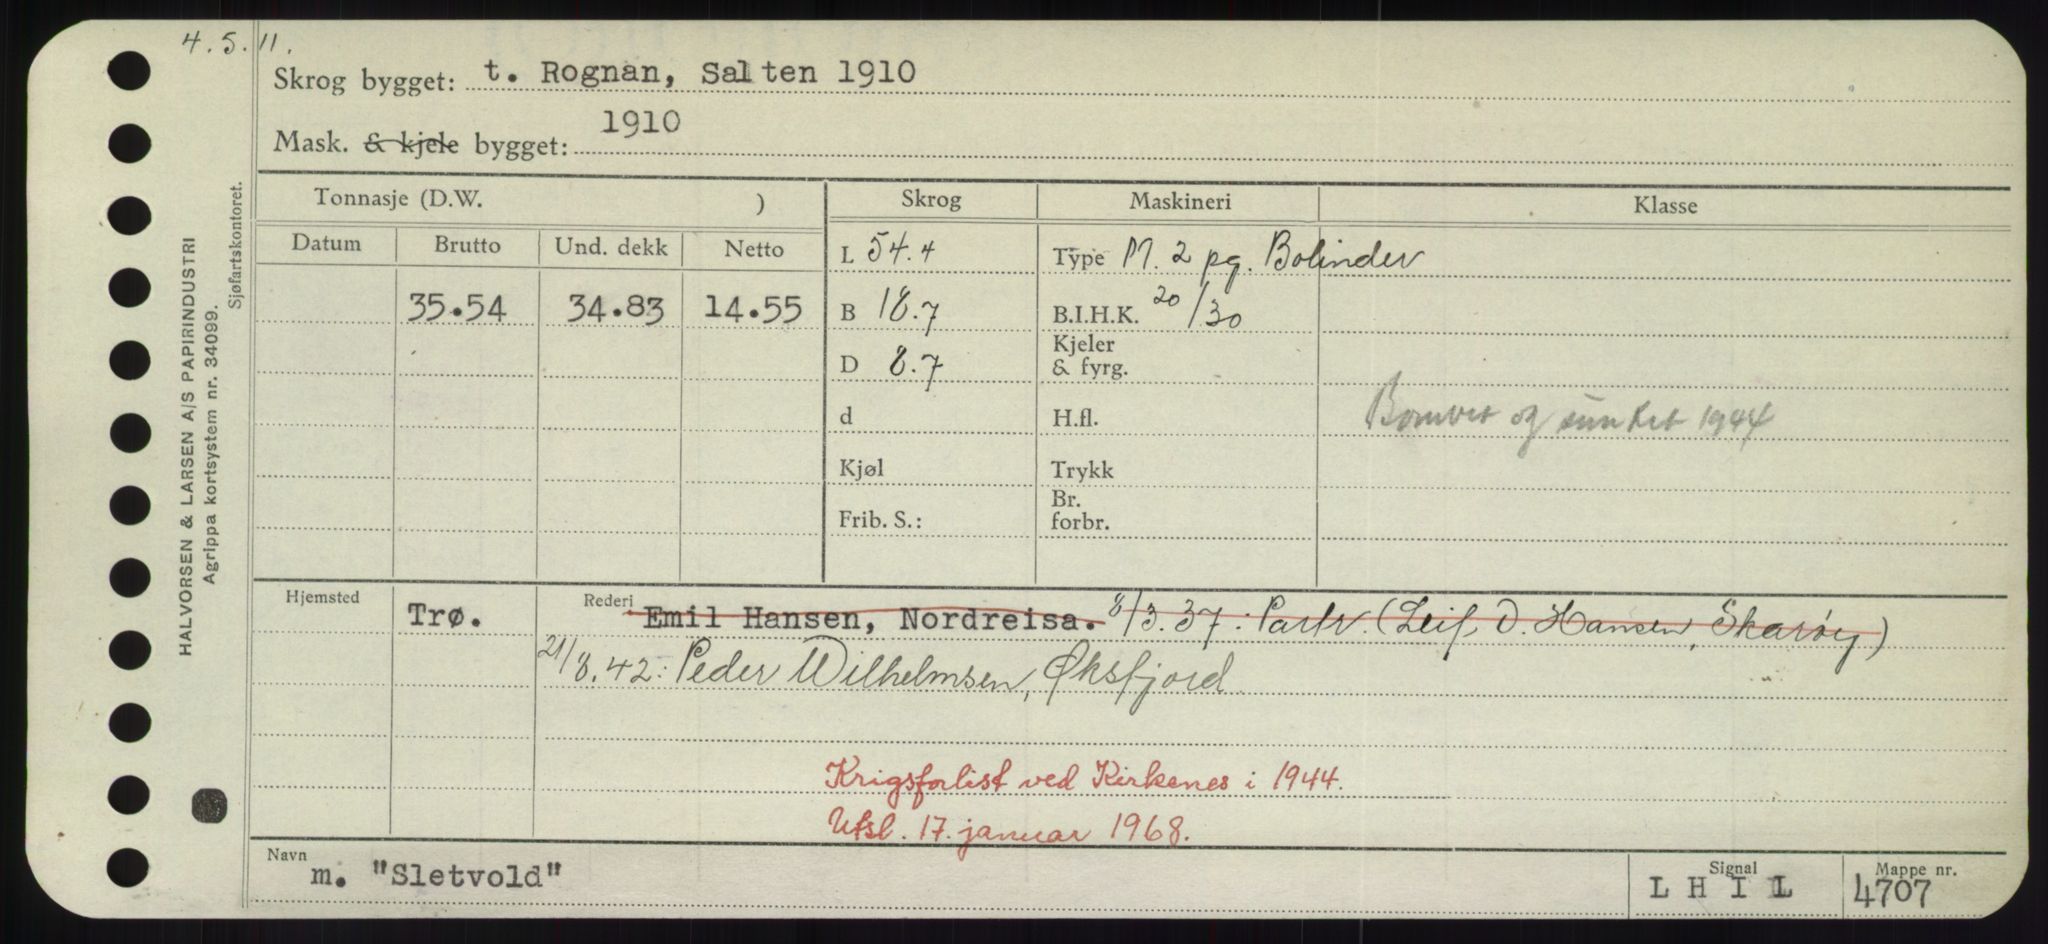 4.5.11.
Skrog bygget: t. Rognan, Salten 1910
Mask. & kjele bygget: 1910
HALVORSEN & LARSEN A/S PAPIRINDUSTRI
Agrippa kortsystem nr. 34099.
Sjøfartskontoret.
Tonnasje (D.W. ) Skrog Maskineri Klasse
Datum Brutto Und. dekk Netto
L 54.4 Type M. 2 pg. Bolinder
35.54 34.83 14.55 B 18.7 B.I.H.K. 20/30
D 8.7 Kjeler
& fyrg.
d H.fl. Bombet og sunket 1944
Kjøl Trykk
Frib. S.: Br.
forbr.
Hjemsted Trø. Rederi Emil Hansen, Nordreisa. 8/3.37: Partr. (Leif D. Hansen, Skarøy)
21/8.42: Peder Wilhelmsen, Øksfjord
Krigsforlist ved Kirkenes i 1944.
Utsl. 17. januar 1968.
Navn m. "Sletvold" Signal LHIL Mappe nr. 4707